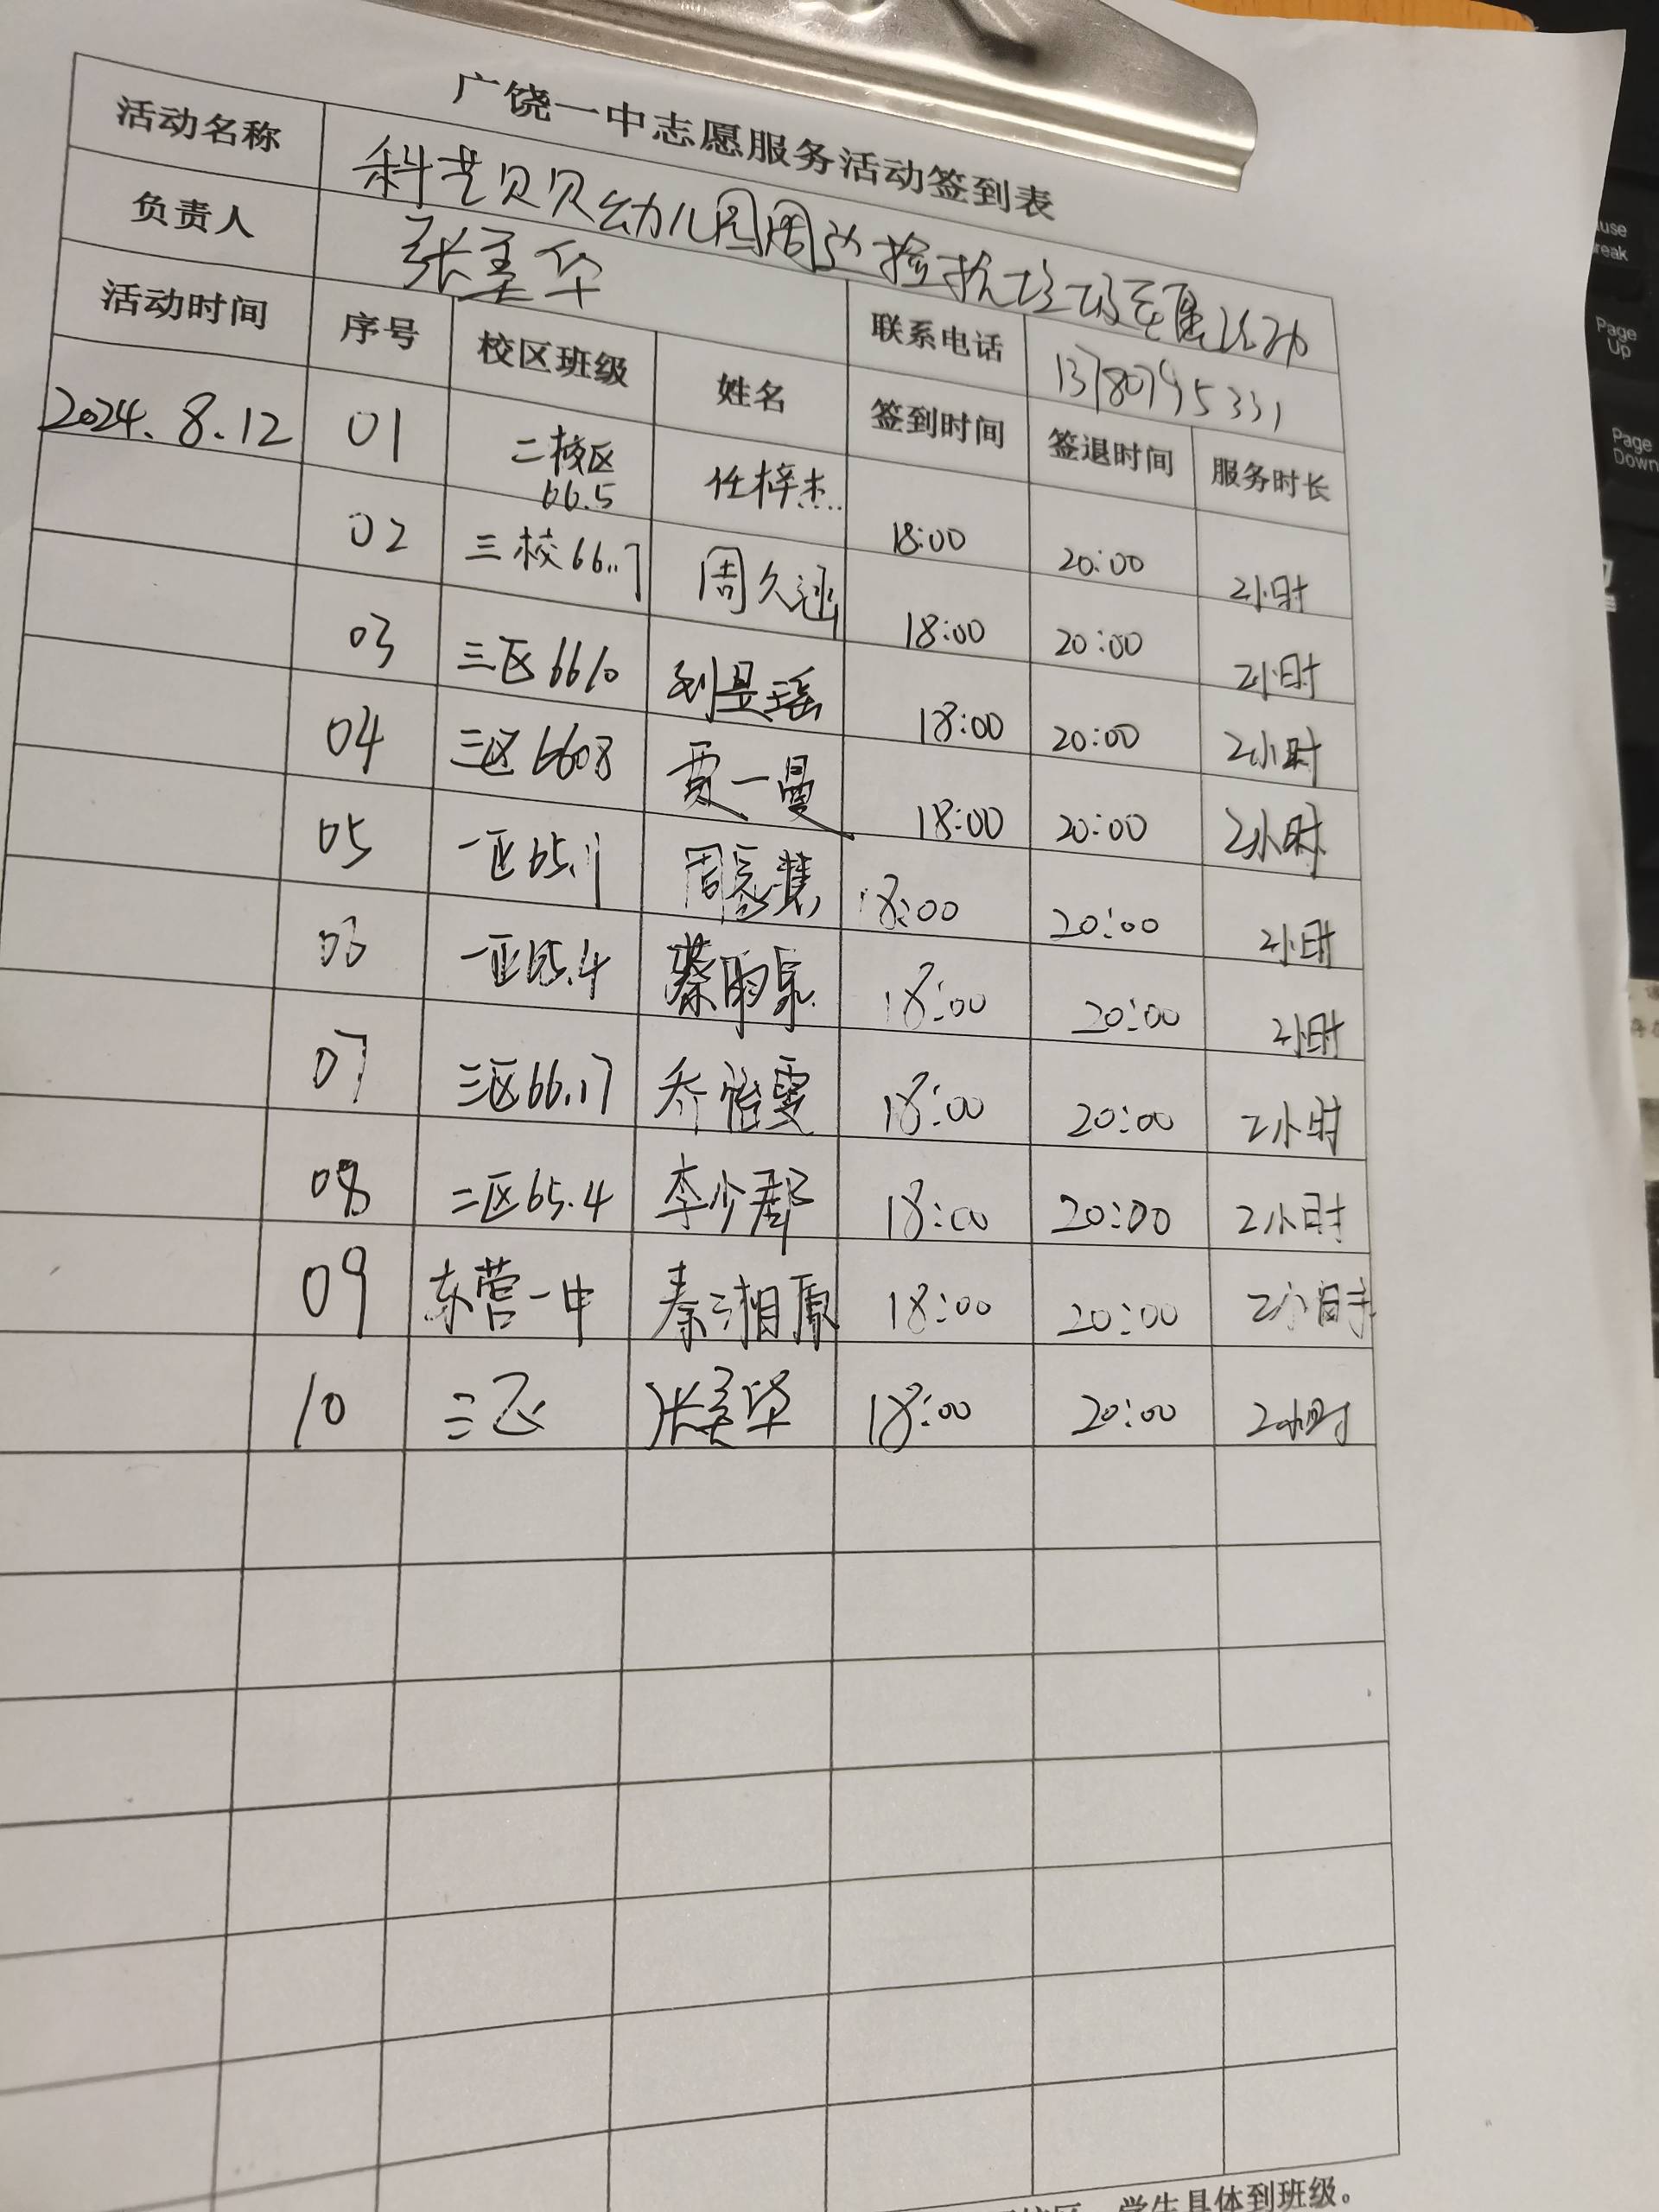 广饶一中志愿服务活动签到表
活动名称 科艺贝贝幼儿园周边捡拾垃圾志愿活动
负责人 张美华 联系电话 13780795331
活动时间 序号 校区班级 姓名 签到时间 签退时间 服务时长
2024.8.12 01 二校区 66.5 任梓杰 18:00 20:00 2小时
02 三校66.17 周久涵 18:00 20:00 2小时
03 三区6610 刘昱瑶 18:00 20:00 2小时
04 三区6608 贾一曼 18:00 20:00 2小时
05 一区65.11 周 慧 18:00 20:00 2小时
06 一区65.4 蔡雨泉 18:00 20:00 2小时
07 三区66.17 乔怡雯 18:00 20:00 2小时
08 二区65.4 李少郡 18:00 20:00 2小时
09 东营一中 秦湘原 18:00 20:00 2小时
10 三区 张美华 18:00 20:00 2小时
学生具体到班级。
use
reak
Page
Up
Page
Down